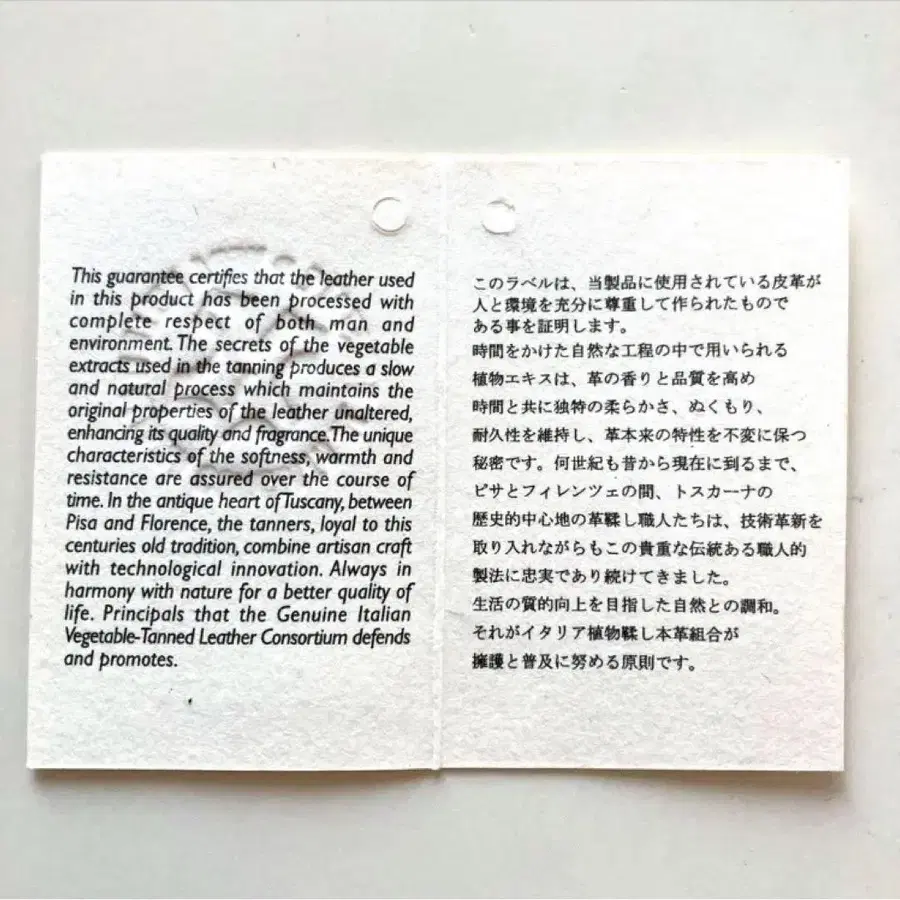 This guarantee certifies that the leather used
in this product has been processed with
complete respect of both man and
environment. The secrets of the vegetable
extracts used in the tanning produces a slow
and natural process which maintains the
original properties of the leather unaltered,
enhancing its quality and fragrance. The unique
characteristics of the softness, warmth and
resistance are assured over the course of
time. In the antique heart of Tuscany, between
Pisa and Florence, the tanners, loyal to this
centuries old tradition, combine artisan craft
with technological innovation. Always in
harmony with nature for a better quality of
life. Principals that the Genuine Italian
Vegetable-Tanned Leather Consortium defends
and promotes.
このラベルは、当製品に使用されている皮革が
人と環境を充分に尊重して作られたもので
ある事を証明します。
時間をかけた自然な工程の中で用いられる
植物エキスは、革の香りと品質を高め
時間と共に独特の柔らかさ、ぬくもり、
耐久性を維持し、革本来の特性を不変に保つ
秘密です。何世紀も昔から現在に到るまで、
ピサとフィレンツェの間、トスカーナの
歴史的中心地の革鞣し職人たちは、技術革新を
取り入れながらもこの貴重な伝統ある職人的
製法に忠実であり続けてきました。
生活の質的向上を目指した自然との調和。
それがイタリア植物鞣し本革組合が
擁護と普及に努める原則です。